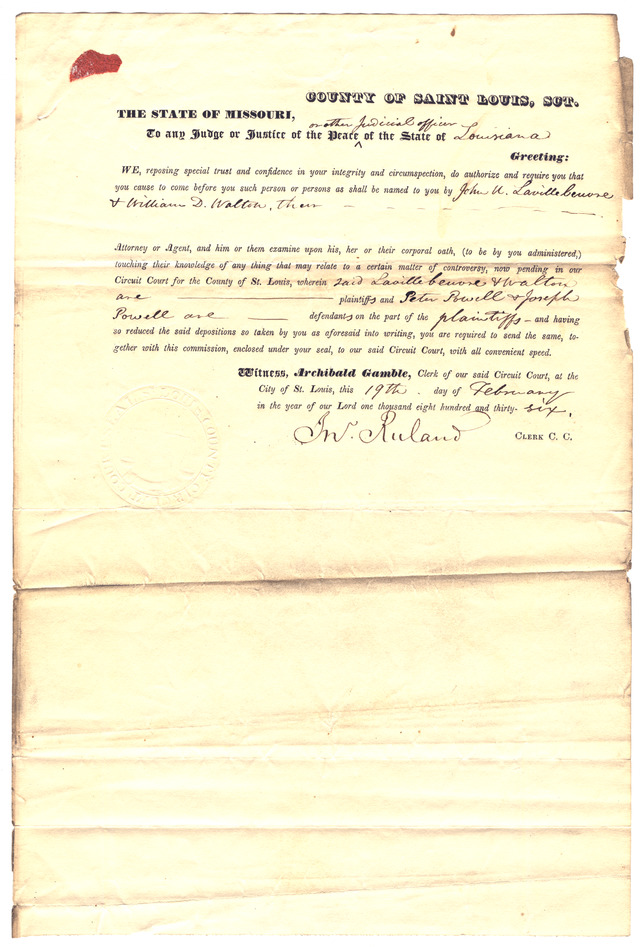 COUNTY OF SAINT LOUIS, SCT.
THE STATE OF MISSOURI,
or other Judicial officer
To any Judge or Justice of the Peace ^ of the State of Louisiana
Greeting:
WE, reposing special trust and confidence in your integrity and circumspection, do authorize and require you that
you cause to come before you such person or persons as shall be named to you by John U. Lavillebeuvre
& William D. Walton, their
Attorney or Agent, and him or them examine upon his, her or their corporal oath, (to be by you administered,)
touching their knowledge of any thing that may relate to a certain matter of controversy, now pending in our
Circuit Court for the County of St. Louis, wherein said Lavillebeuvre & Walton
are plaintiffs and Peter Powell & Joseph
Powell are defendants on the part of the plaintiffs - and having
so reduced the said depositions so taken by you as aforesaid into writing, you are required to send the same, to-
gether with this commission, enclosed under your seal, to our said Circuit Court, with all convenient speed.
Witness, Archibald Gamble, Clerk of our said Circuit Court, at the
City of St. Louis, this 19th. day of February
in the year of our Lord one thousand eight hundred and thirty- six.
Jno. Ruland CLERK C. C.